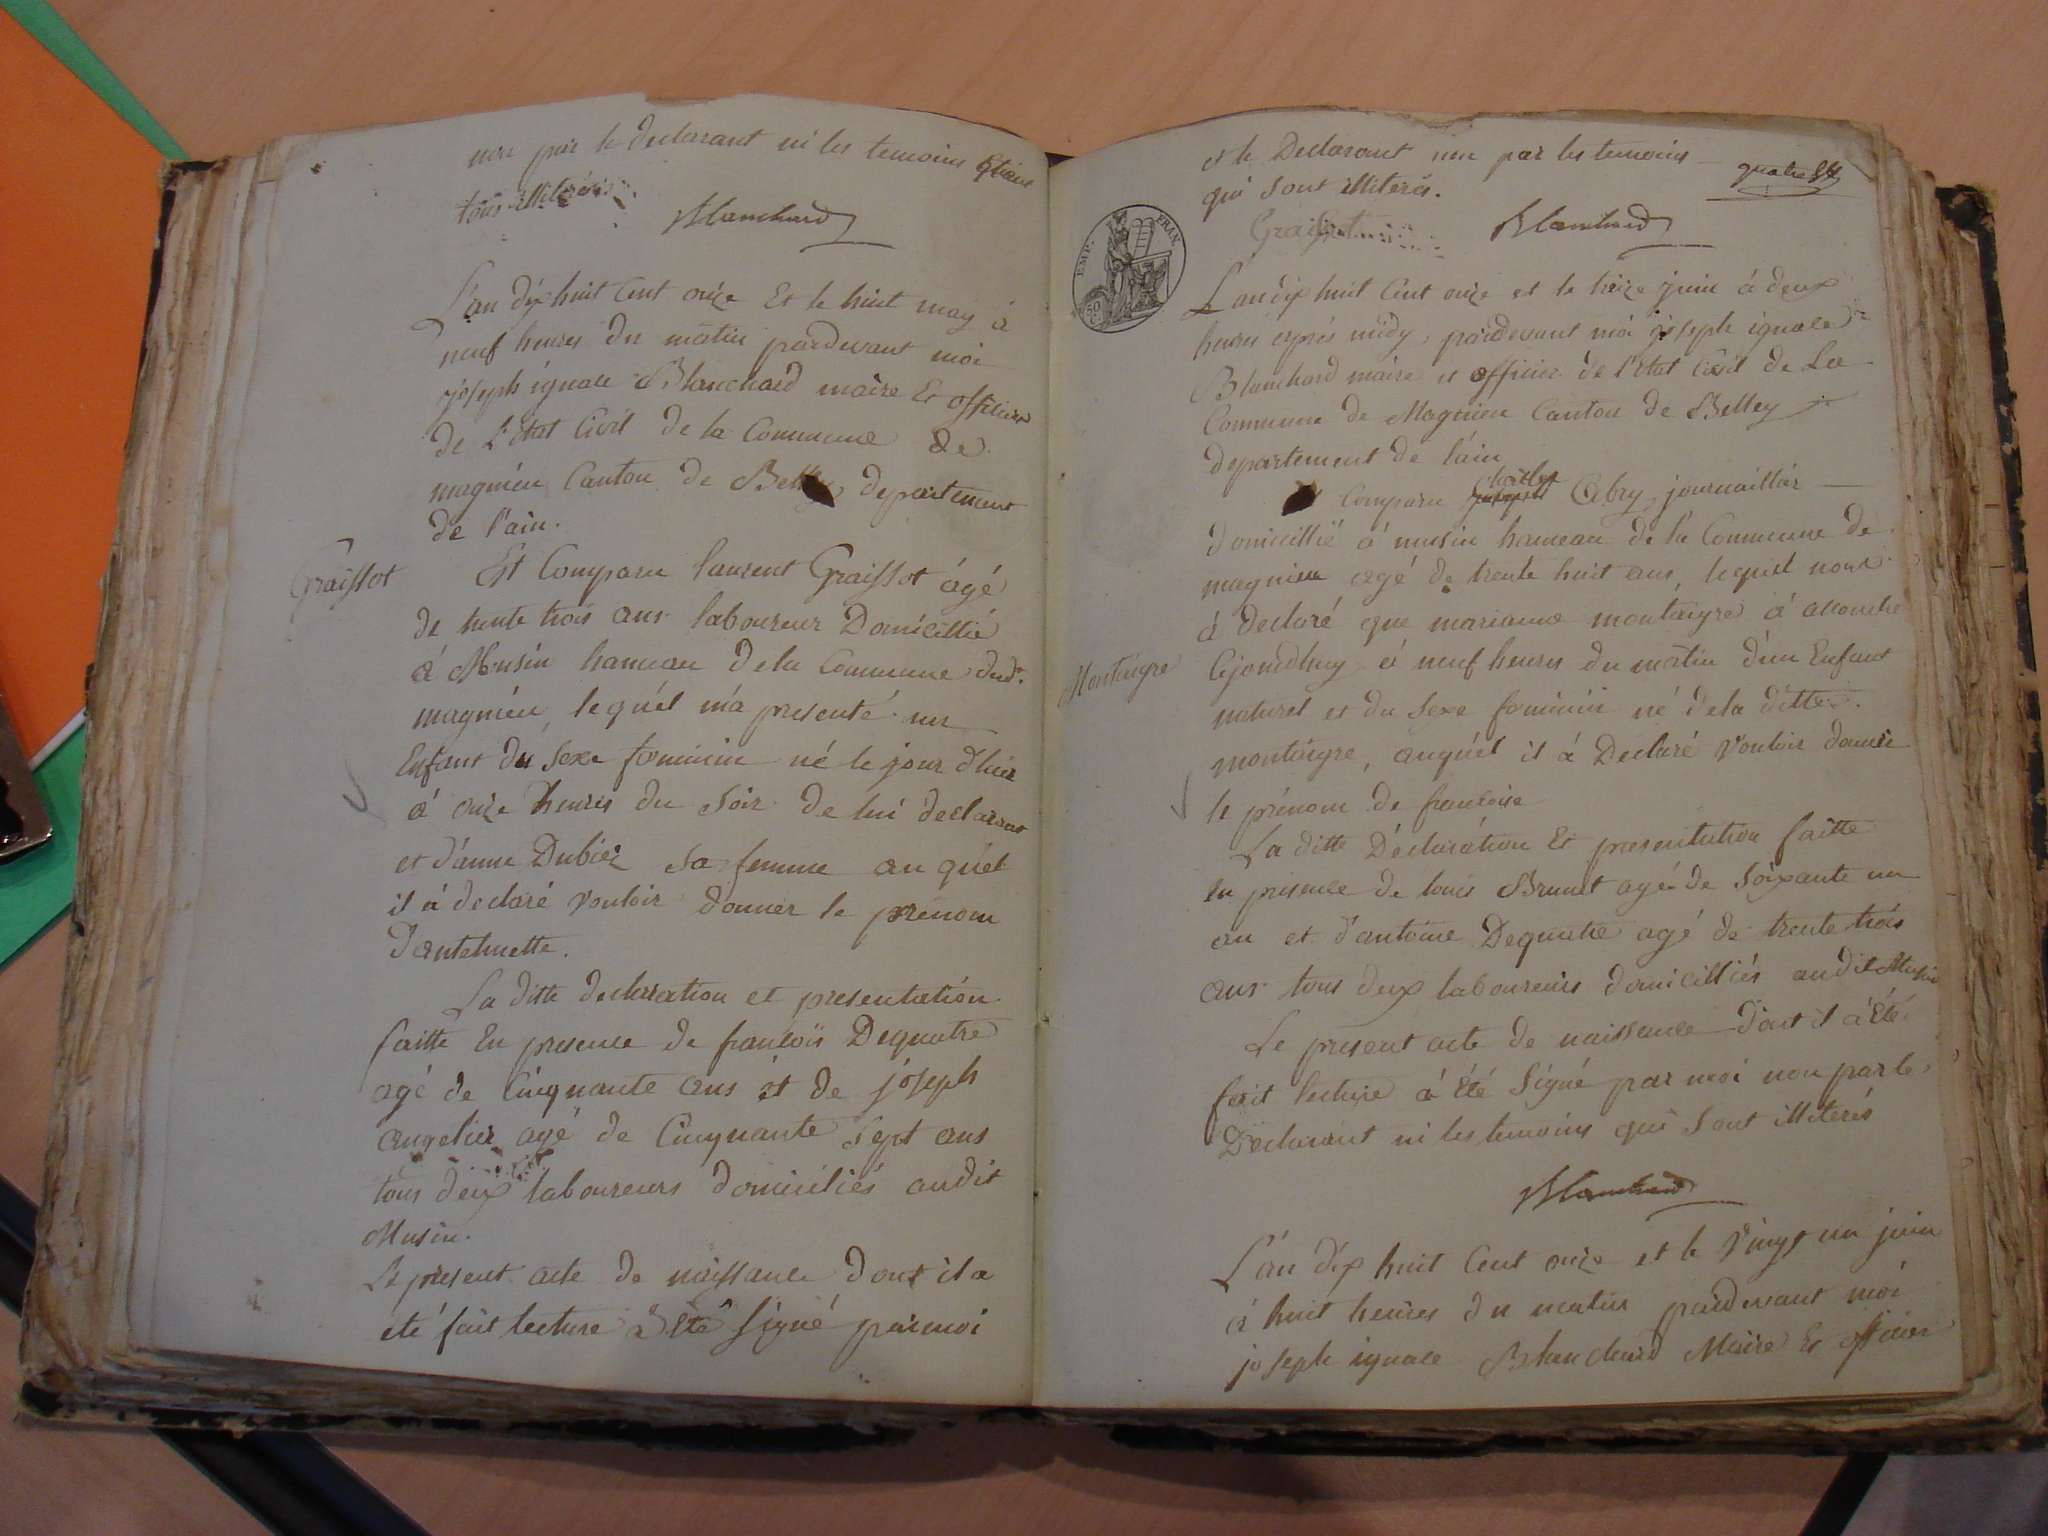 non par le declarant ni les temoins étant
tous illiterés
Blanchard
L'an dix huit Cent onze Et le huit may à
neuf heures du matin pardevant moi
joseph ignace Blanchard maire Et officier
de L'état Civil de la Commune de
magnieu Canton de Belley, departement
de l'ain.
Graissot
Et Comparu laurent Graissot âgé
de trente trois ans laboureur Domicillié
à Musin hameau de la Commune dud.
magnieu, lequél m'a presenté un
Enfant du sexe feminin né le jour d'hier
à onze heures du soir de lui declarant
et d'anne Dubiez sa femme au quél
il à declaré vouloir donner le prénom
d'antelmette.
La ditte declaration et presentation
faitte En presence de françois Dequatre
agé de Cinquante ans et de joseph
angelier agé de Cinquante sept ans
tous deux laboureurs domiciliés audit
Musin.
Le present acte de naissance dont il a
été fait lecture à été signé par moi
et le Declarant non par les temoins
qui sont illiterés.
quatre
Graissot
Blanchard
EMP. FRAN.
L'an dix huit Cent onze et le treize juin à deux
heures après midy, pardevant moi joseph ignace
Blanchard maire et officier de l'état Civil de La
Commune de Magnieu Canton de Belley
departement de l'ain
Comparu Cabry, journaillier
domicillié à musin hameau de la Commune de
magnieu agé de trente huit ans, lequel nous
à declaré que marianne montaigre à accouché
Cejourdhuy à neuf heures du matin d'un Enfant
Montaigre
naturel et du sexe feminin né de la ditte
montaigre, auquél il à Declaré vouloir donner
le prénom de francoise
La ditte Déclaration Et presentation faitte
En presence de louis Brunet agé de soixante un
an et d'antoine Dequatre agé de trente trois
ans tous deux laboureurs domicilliés audit Musin
Le present acte de naissance dont il à été
fait lecture à été signé par moi non par le
Declarant ni les temoins qui sont illiterés
Blanchard
L'an dix huit Cent onze et le vingt un juin
à huit heures du matin pardevant moi
joseph ignace Blanchard Maire Et officier